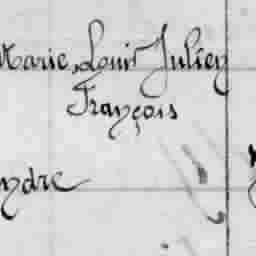 Marie, Louis Julien
François
ndre